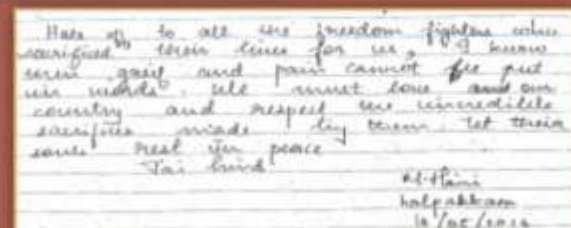 Hats off to all the freedom fighters who
sacrificed their lives for us, I know
their grief and pain cannot be put
in words. We must love our
country and respect the incredible
sacrifices made by them let their
souls rest in peace
Jai hind
kalpakkam